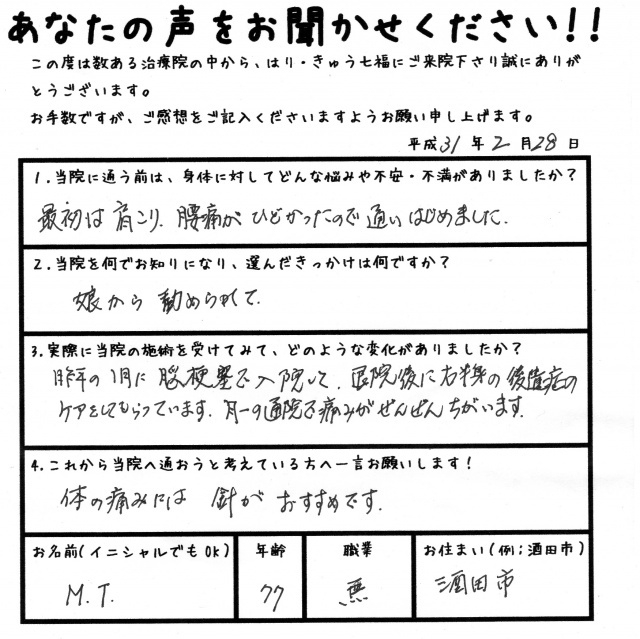 あなたの声をお聞かせください!!
この度は数ある治療院の中から、はり・きゅう七福にご来院下さり誠にありが
とうございます。
お手数ですが、ご感想をご記入くださいますようお願い申し上げます。
平成31年2月28日
1.当院に通う前は、身体に対してどんな悩みや不安・不満がありましたか？
最初は肩こり、腰痛がひどかったので通いはじめました。
2.当院を何でお知りになり、選んだきっかけは何ですか？
娘から勧められて
3.実際に当院の施術を受けてみて、どのような変化がありましたか？
昨年の1月に脳梗塞で入院して、退院後に右半身の後遺症の
ケアをしてもらっています。月一の通院で痛みがぜんぜんちがいます。
4.これから当院へ通おうと考えている方へ一言お願いします！
体の痛みには針がおすすめです。
お名前(イニシャルでもOK) 年齢 職業 お住まい(例；酒田市)
M.T. 77 無 酒田市